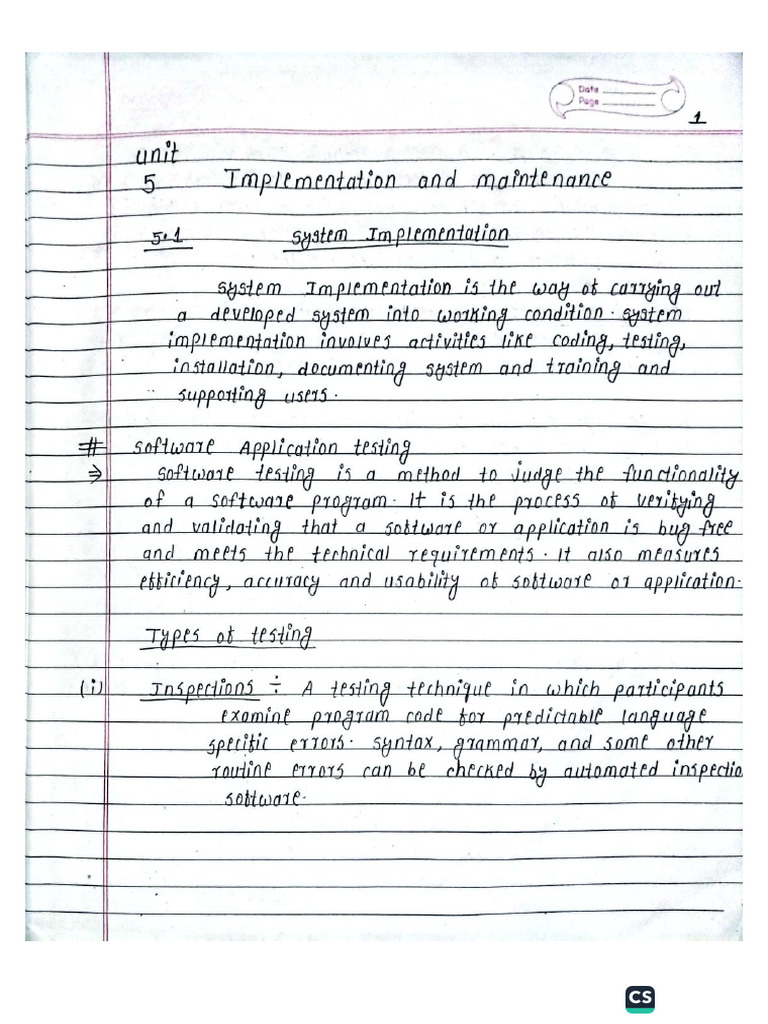 Date
Page
1
unit
5 Implementation and maintenance
5.1 System Implementation
System Implementation is the way of carrying out
a developed system into working condition. system
implementation involves activities like coding, testing,
installation, documenting system and training and
supporting users.
# Software Application testing
⇒ Software testing is a method to judge the functionality
of a software program. It is the process of verifying
and validating that a software or application is bug free
and meets the technical requirements. It also measures
efficiency, accuracy and usability of software or application.
Types of testing
(i) Inspections ÷ A testing technique in which participants
examine program code for predictable language
specific errors. syntax, grammar, and some other
routine errors can be checked by automated inspectio
software.
CS